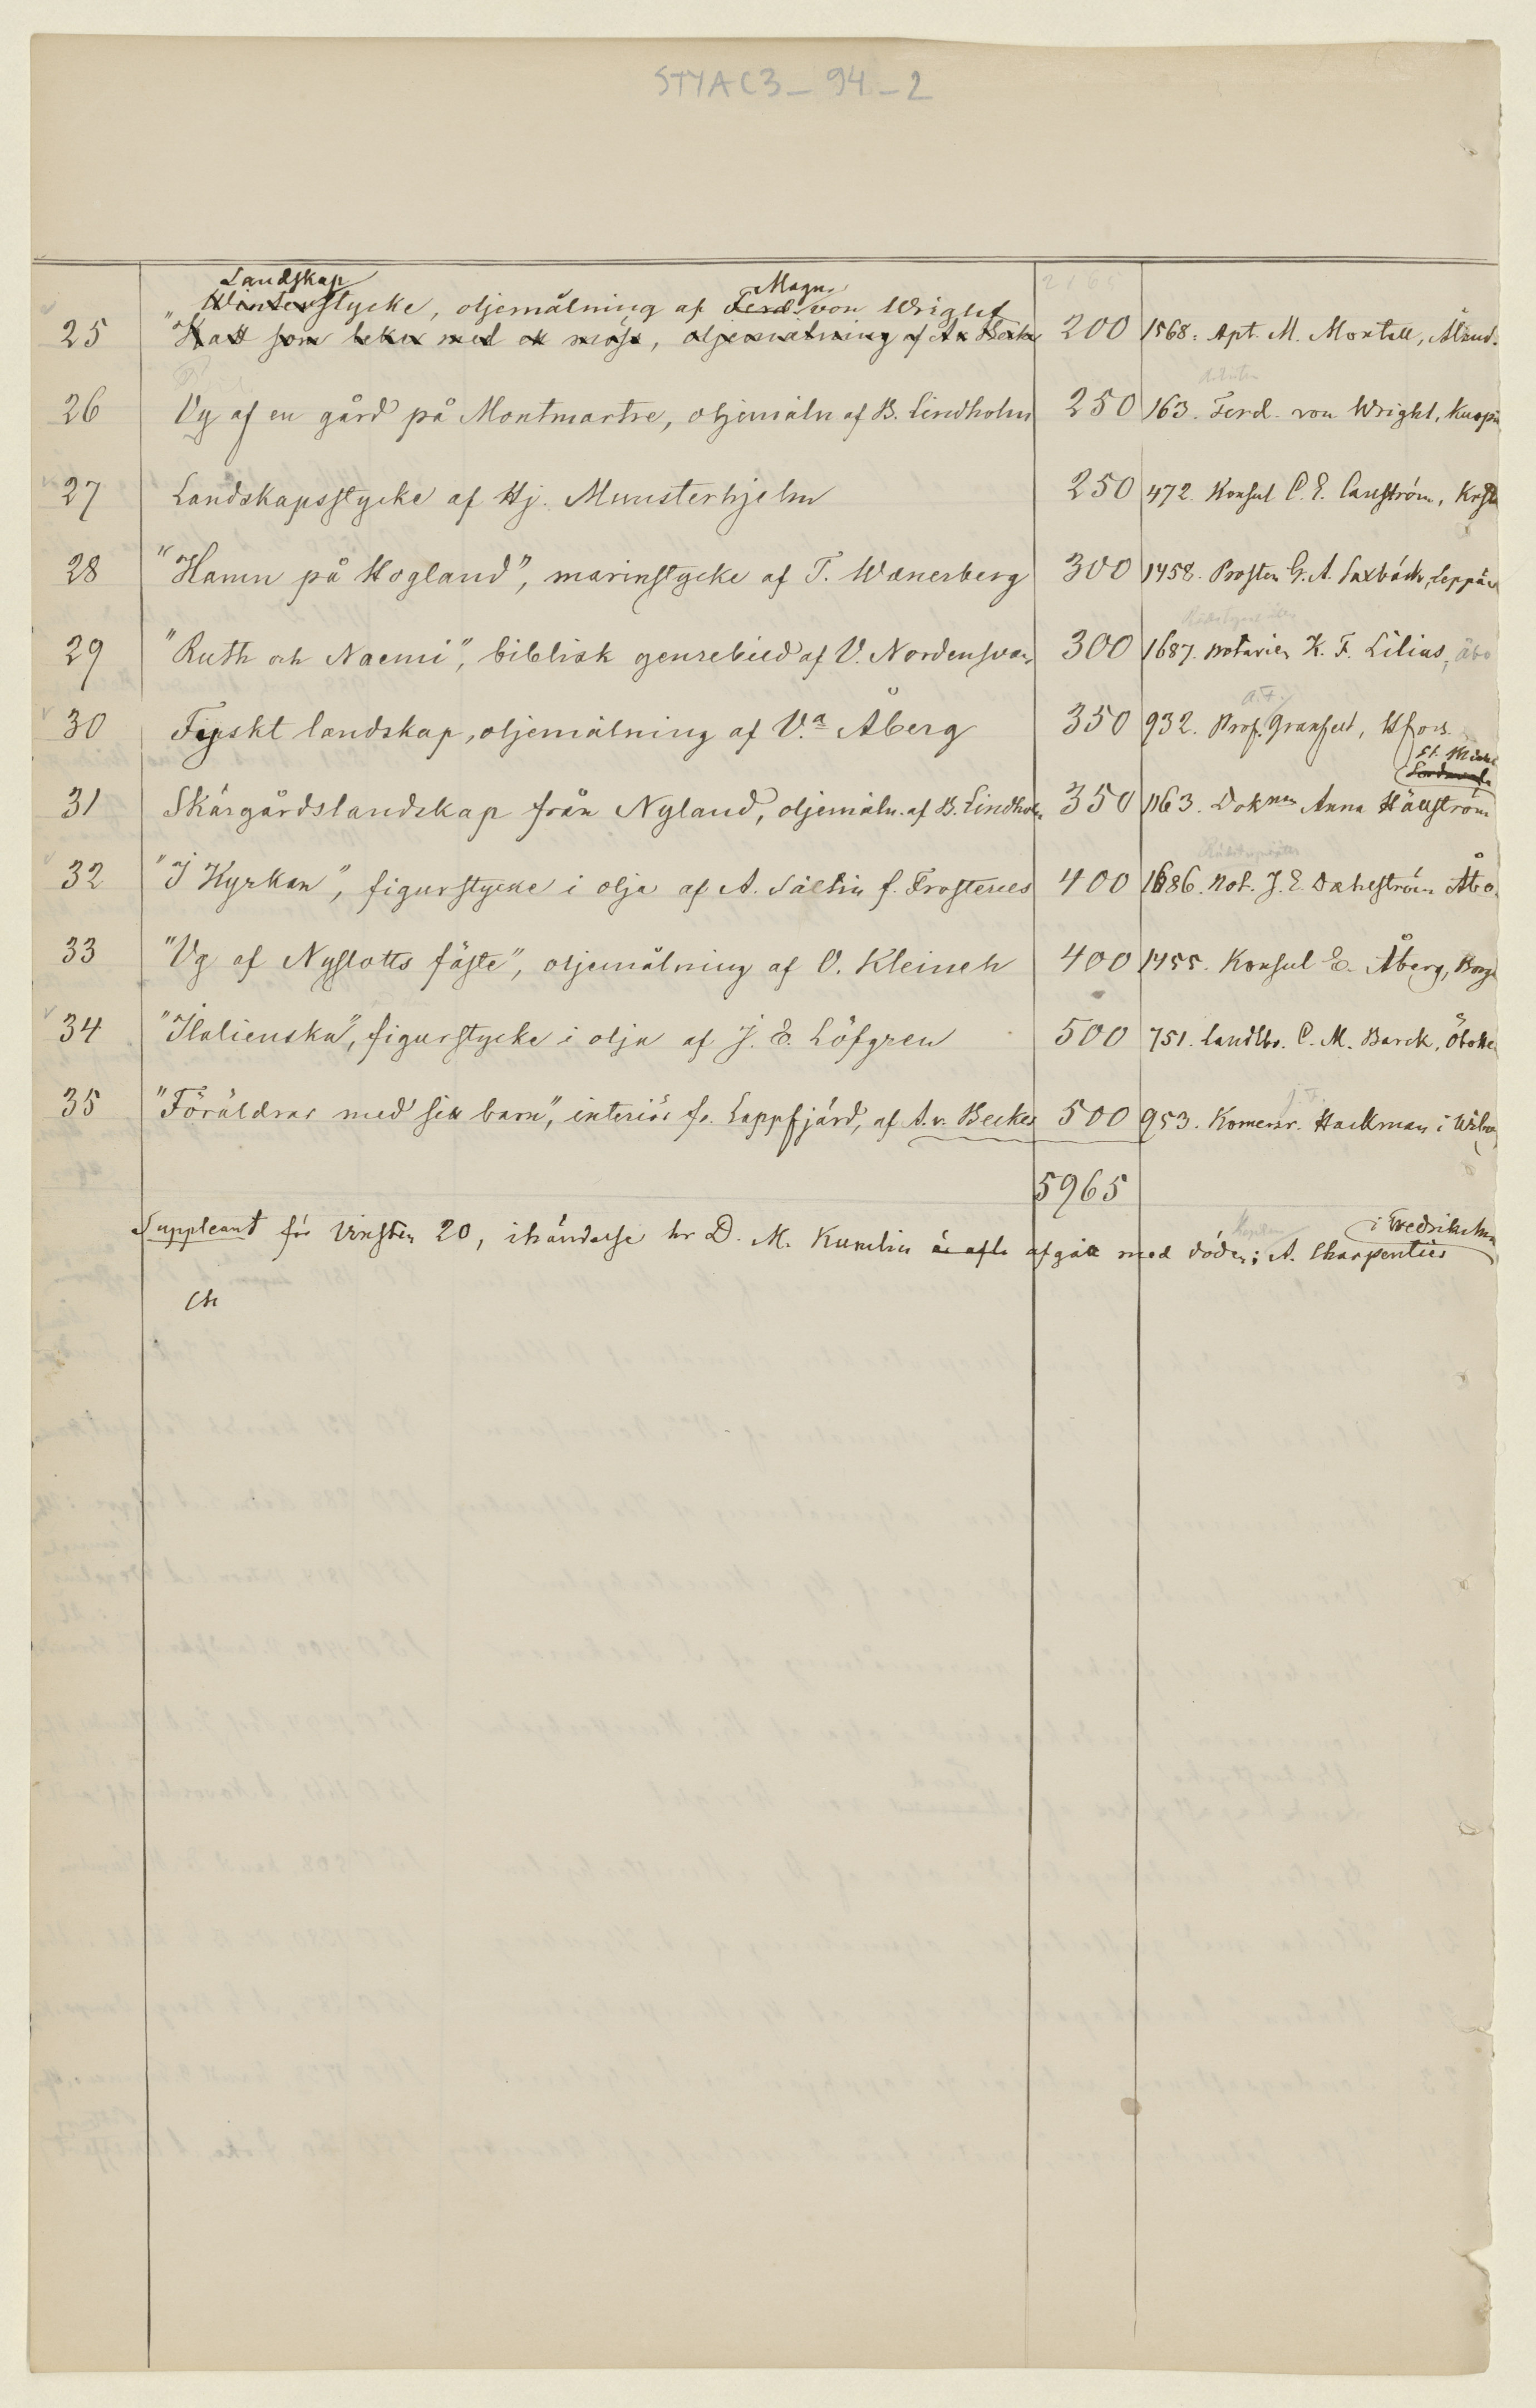 STYAC3_94_2
Landskap Magn.
Winterstycke, oljemålning af Ferd. von Wright
25 "Katt som leker med en mössa, oljemålning af A. v. Becker 200 1568. Apt. M. Montell, Åland.
26 Vy af en gård på Montmartre, oljemåln af B. Lindholm 250 163. Ferd. von Wright, Kuopio
27 Landskapsstycke af Hj. Munsterhjelm 250 472. Konsul C. E. Carlström, Krist
28 "Hamn på Hogland", marinstycke af T. Wænerberg 300 1458. Prosten G. A. Saxbäck, Leppäv
29 "Ruth och Naemi", biblisk genrebild af V. Nordensvan 300 1687. Notarien K. F. Lilius, Åbo
A. F.
30 Tyskt landskap, oljemålning af V.a Åberg 350 932. Prof. Granfelt, Hfors.
St. Michel
31 Skärgårdslandskap från Nyland, oljemåln. af B. Lindholm 350 1163. Anna Hällström
32 "I Kyrkan", figurstycke i olja af A. Sältin f. Frosterus 400 1686. Not. J. E. Dahlström Åbo.
33 "Vy af Nyslotts fäste", oljemålning af O. Kleineh 400 1455. Konsul E. Åberg, Borgå
34 "Italienska", figurstycke i olja af J. E. Löfgren 500 751. Landtbr. C. M. Barck,
J. F.
35 "Föräldrar med sin barn", interiör fr. Lappfjärd, af A. v. Becker 500 953. Komersr. Hackman i Wiborg
5965
i Fredrikshn
Suppleant för Vinsten 20, ihändelse hr D. M. Kumlin afgått med döden; A. Charpentier